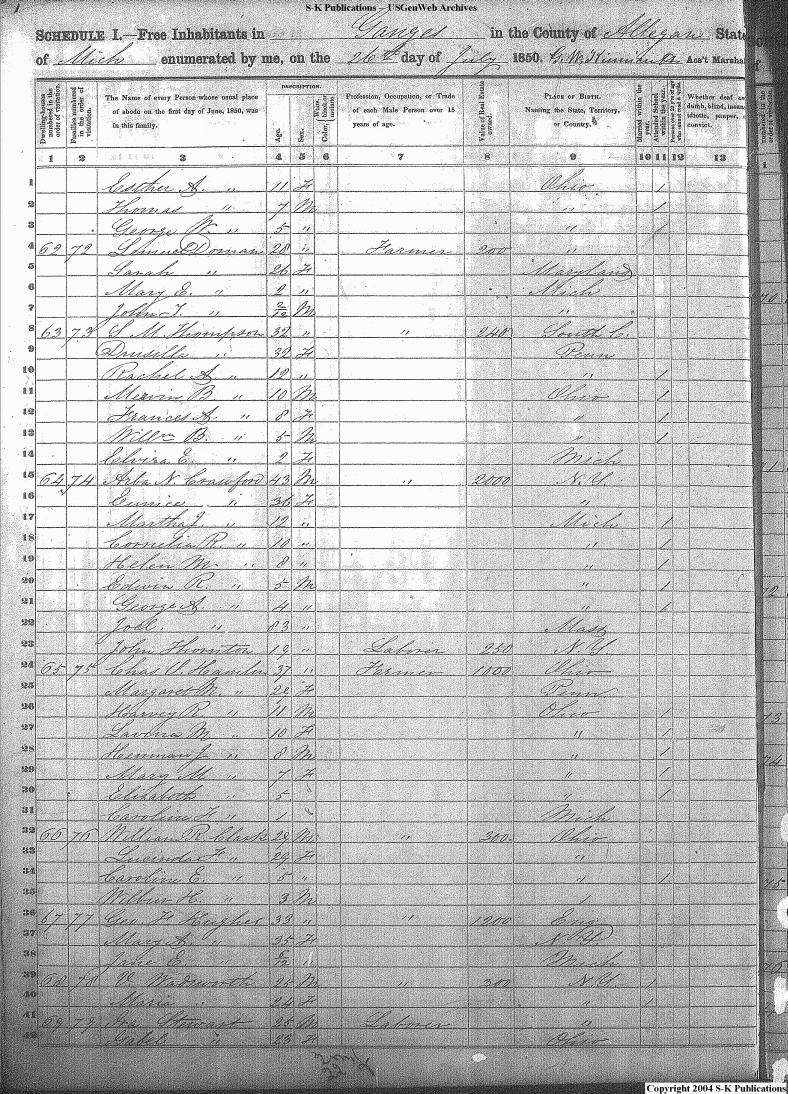 S-K Publications – USGenWeb Archives
SCHEDULE I.—Free Inhabitants in Ganges in the County of Allegan State
of Mich enumerated by me, on the 26th day of July 1850. Ass't Marshal
Dwelling-houses numbered in the order of visitation.
Families numbered in the order of visitation.
The Name of every Person whose usual place of abode on the first day of June, 1850, was in this family.
DESCRIPTION.
Age.
Sex.
White, Color, black, or mulatto.
Profession, Occupation, or Trade of each Male Person over 15 years of age.
Value of Real Estate owned.
PLACE OF BIRTH. Naming the State, Territory, or Country.
Married within the year.
Attended School within the year.
Whether deaf and dumb, blind, insane, idiotic, pauper, convict.
1 2 3 4 5 6 7 8 9 10 11 12 13
1 Esther A. " 11 F Ohio 1
2 Thomas " 7 M " 1
3 George W. " 5 " " 1
4 62 72 Lemuel Doman 28 " Farmer 200 "
5 Sarah " 26 F Maryland
6 Mary E. " 2 " Mich
7 John T. " 2/12 M "
8 63 73 S. M. Thompson 32 " " 240 South C.
9 Drusilla " 32 F Penn
10 Rachel A. " 12 " " 1
11 Mervin B. " 10 M Ohio 1
12 Frances A. " 8 F " 1
13 Willm B. " 5 M " 1
14 Elvira E. " 2 F Mich
15 64 74 Arba N. Crawford 43 M " 2000 N.Y.
16 Eunice " 36 F "
17 Martha J. " 12 " Mich 1
18 Cornelia R. " 10 " " 1
19 Helen M. " 8 " " 1
20 Edwin R. " 5 M " 1
21 George A. " 4 " " 1
22 Joel " 83 " Mass
23 John Thornton 19 " Laborer 250 N.Y.
24 65 75 Chas U. Hamlin 37 " Farmer 1000 Ohio
25 Margaret M. " 28 F Penn
26 Harvey R. " 11 M Ohio 1
27 Lavina M. " 10 F " 1
28 Henman J. " 8 M " 1
29 Mary M " 7 F " 1
30 Elizabeth " 5 " " 1
31 Caroline F. " 1 " Mich
32 66 76 William R. Clark 29 M " 300 Ohio
33 Lucinda F. " 29 F "
34 Caroline E. " 5 " " 1
35 Wilbur H. " 3 M "
36 67 77 Geo. H. Hughes 33 " " 1200 Eng
37 Mary A. " 25 F N.Y.
38 Jane E. " " Mich
39 68 78 V. Wadsworth 25 M " 300 N.Y. 1
40 Maria " 24 F " 1
41 69 79 Ira Stewart 25 M Laborer "
42 Isabel " 23 F Ohio
Copyright 2004 S-K Publications